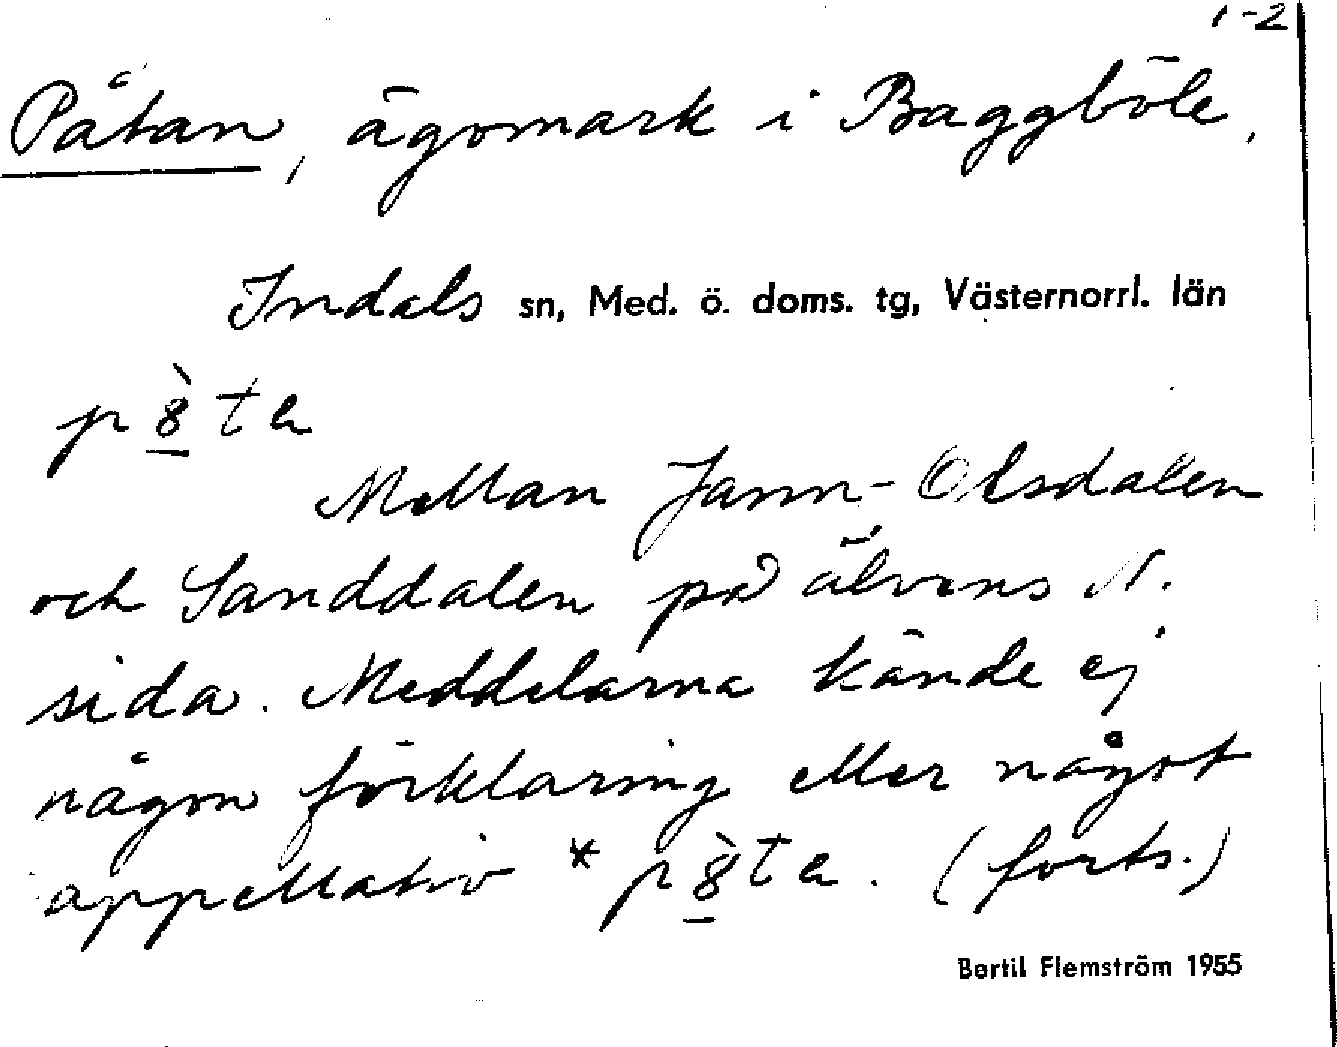 1-2
Påtan, ägomark i Baggböle,
Indals sn, Med. ö. doms. tg, Västernorrl. län
p8̀ta
Mellan Jann-Olsdalen
och Sanddalen på älvens N.
sida. Meddelarna kände ej
någon förklaring eller något
appellativ *p8̀ta. (forts.)
Bertil Flemström 1955